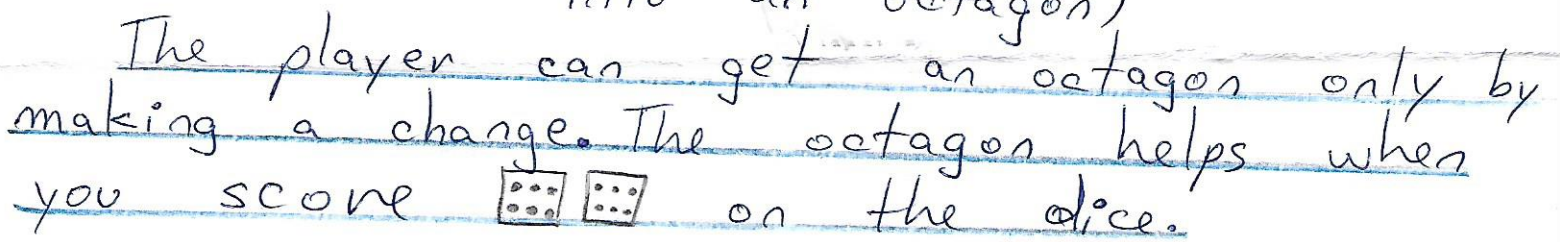 into an octagon)
The player can get an octagon only by
making a change. The octagon helps when
you score ⚅ ⚅ on the dice.